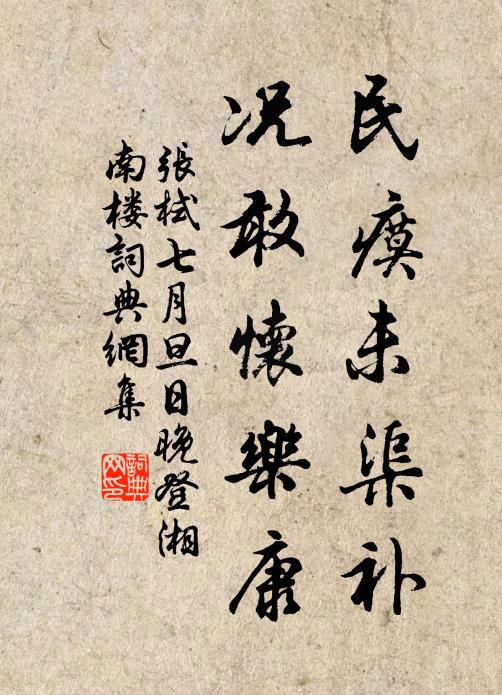 民瘼未渠补
况敢懷樂康
張栻七月旦日晚登湘
南楼詞典網集
詞典
网印